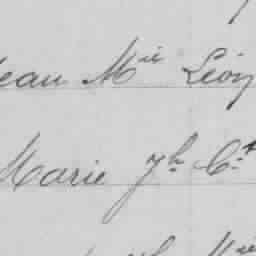 Jean Mie Léon
Marie Jh C.t